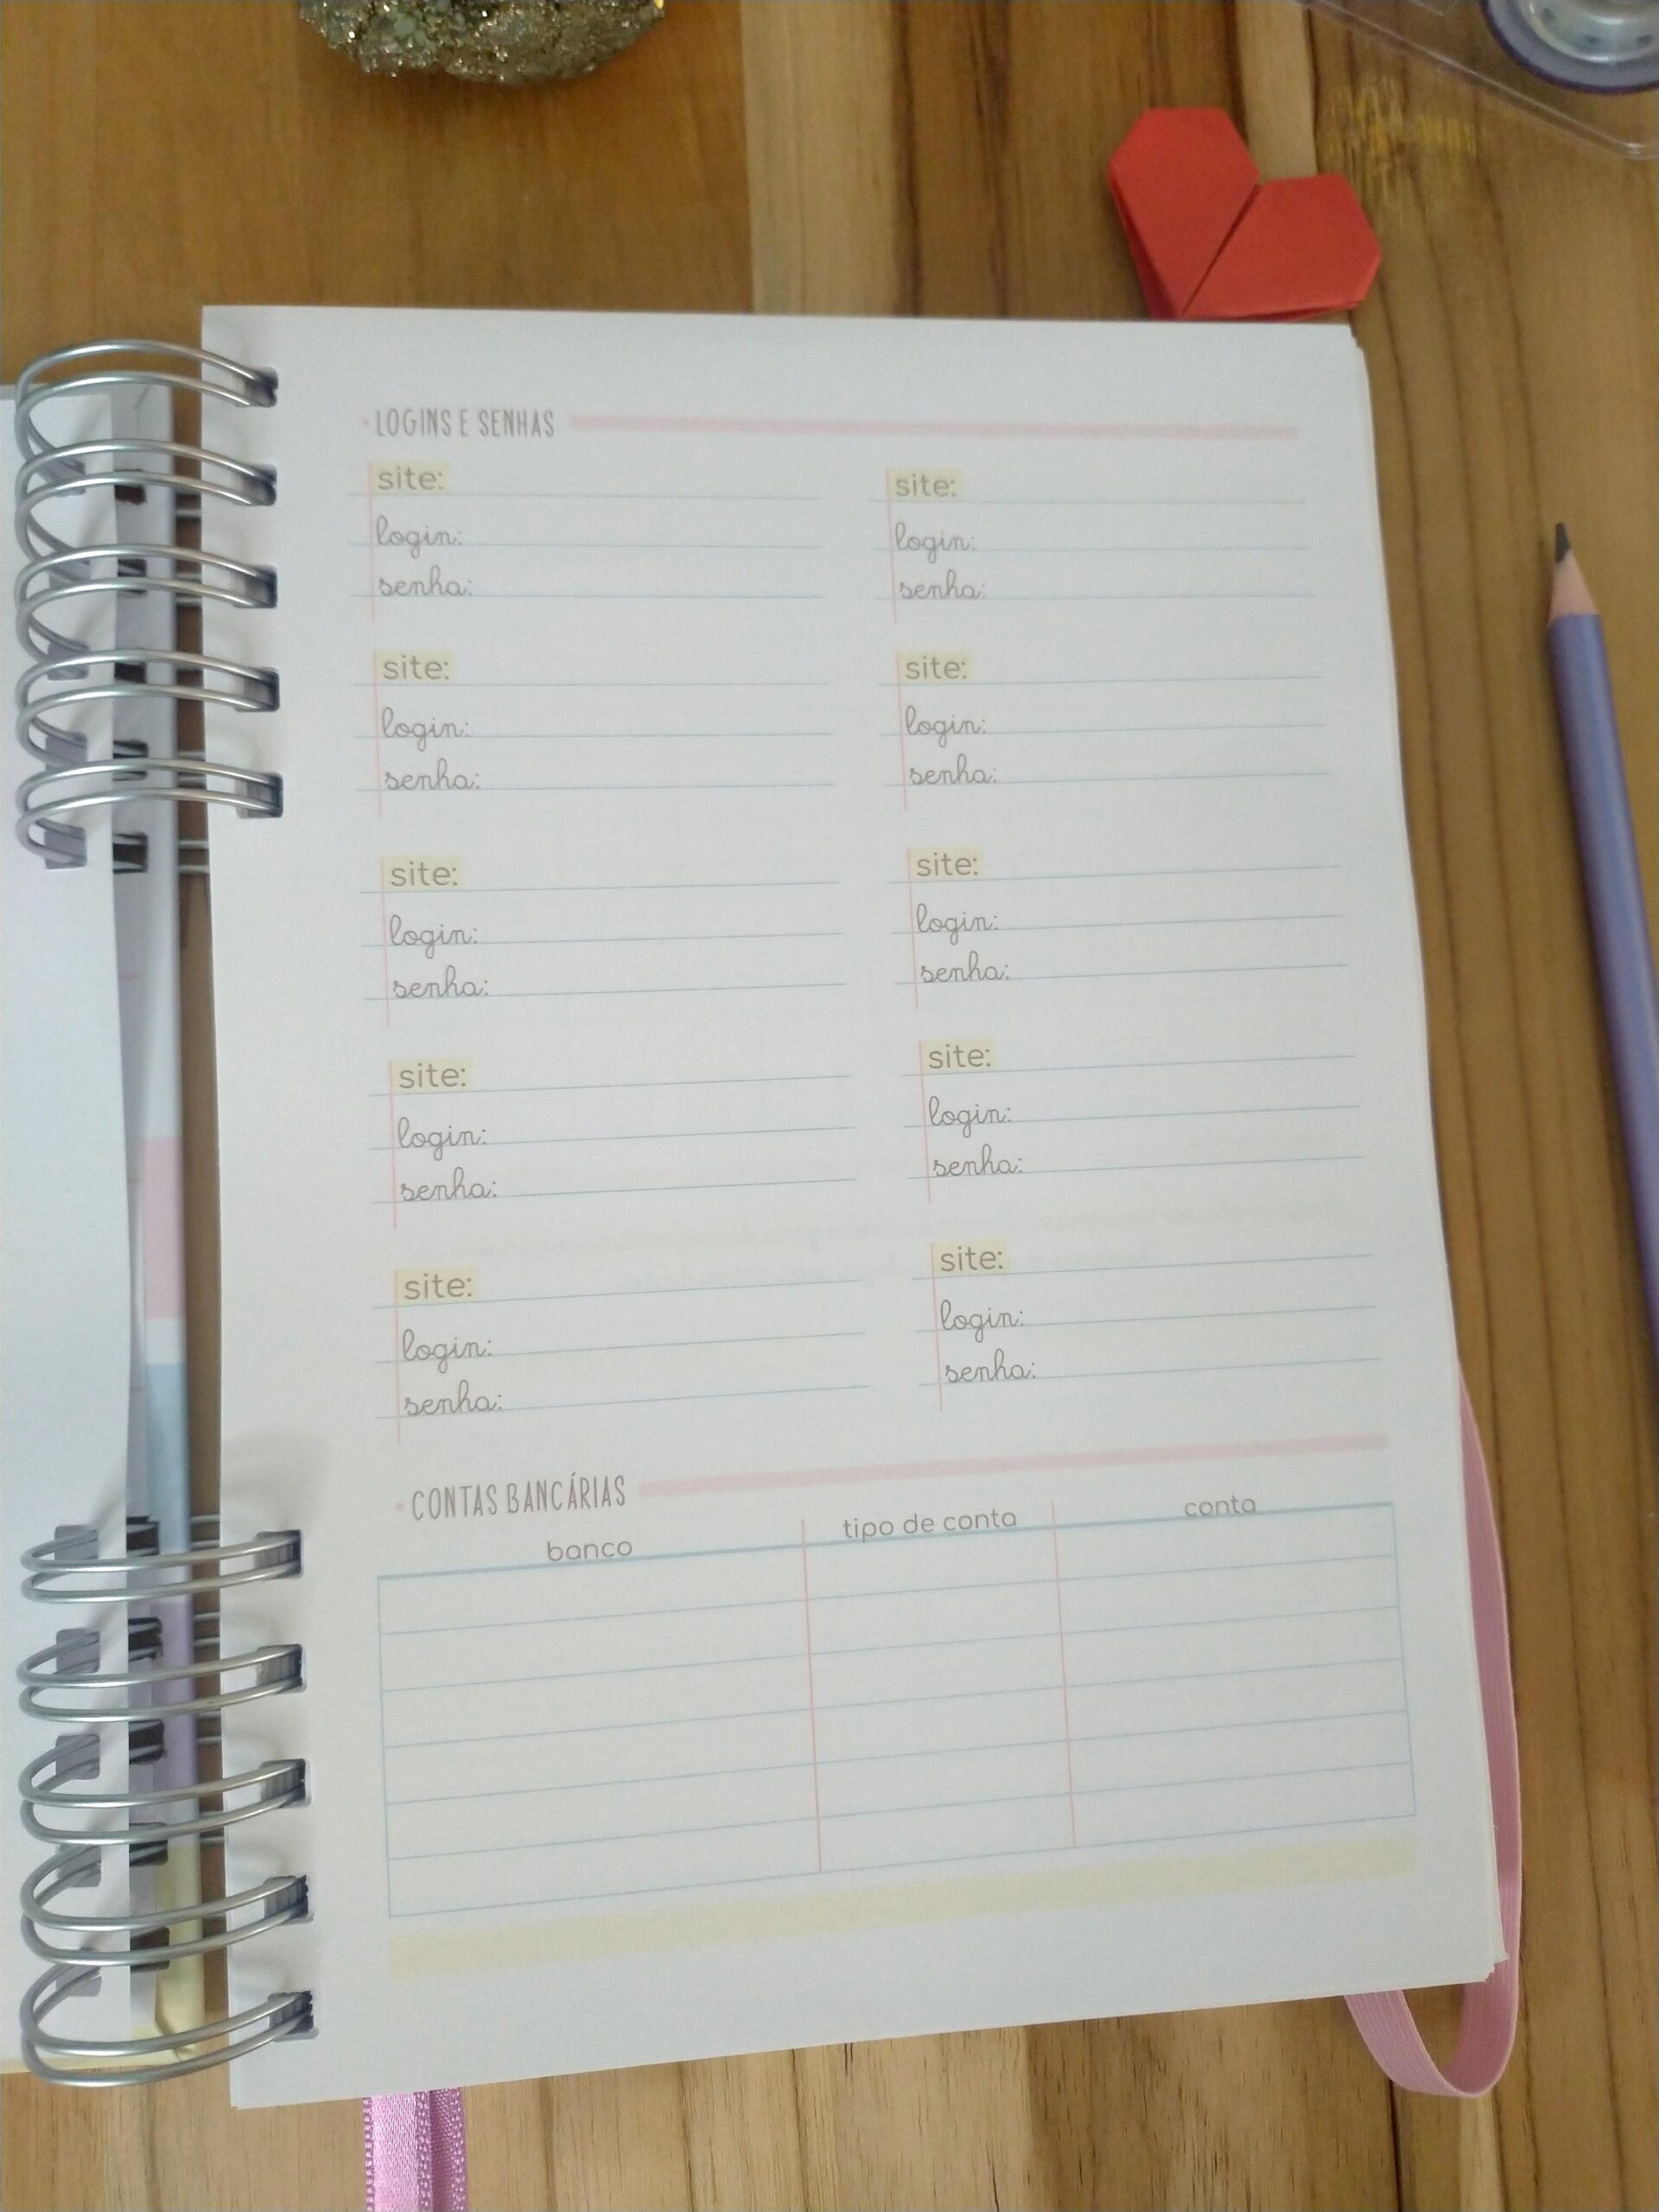 LOGINS E SENHAS
site:
login:
senha:
site:
login:
senha:
site:
login:
senha:
site:
login:
senha:
site:
login:
senha:
site:
login:
senha:
site:
login:
senha:
site:
login:
senha:
site:
login:
senha:
site:
login:
senha:
CONTAS BANCÁRIAS
banco tipo de conta conta